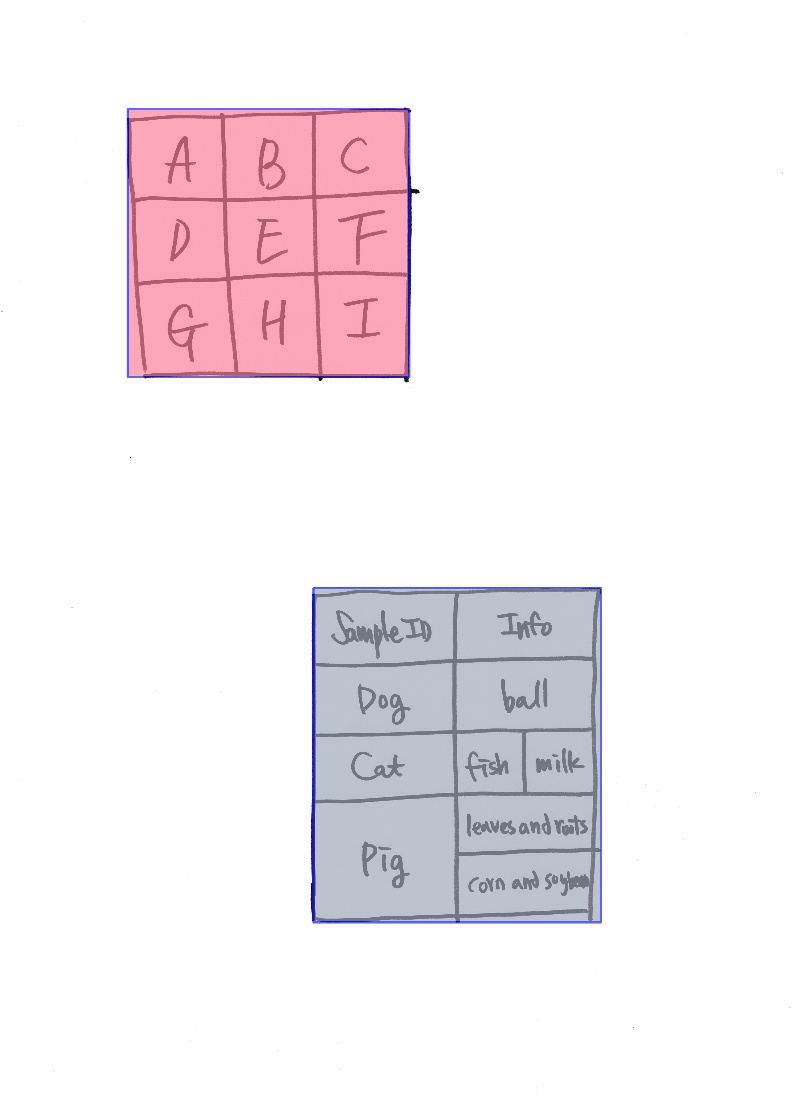 A B C
D E F
G H I
Sample ID Info
Dog ball
Cat fish milk
Pig
leaves and roots
corn and soybean